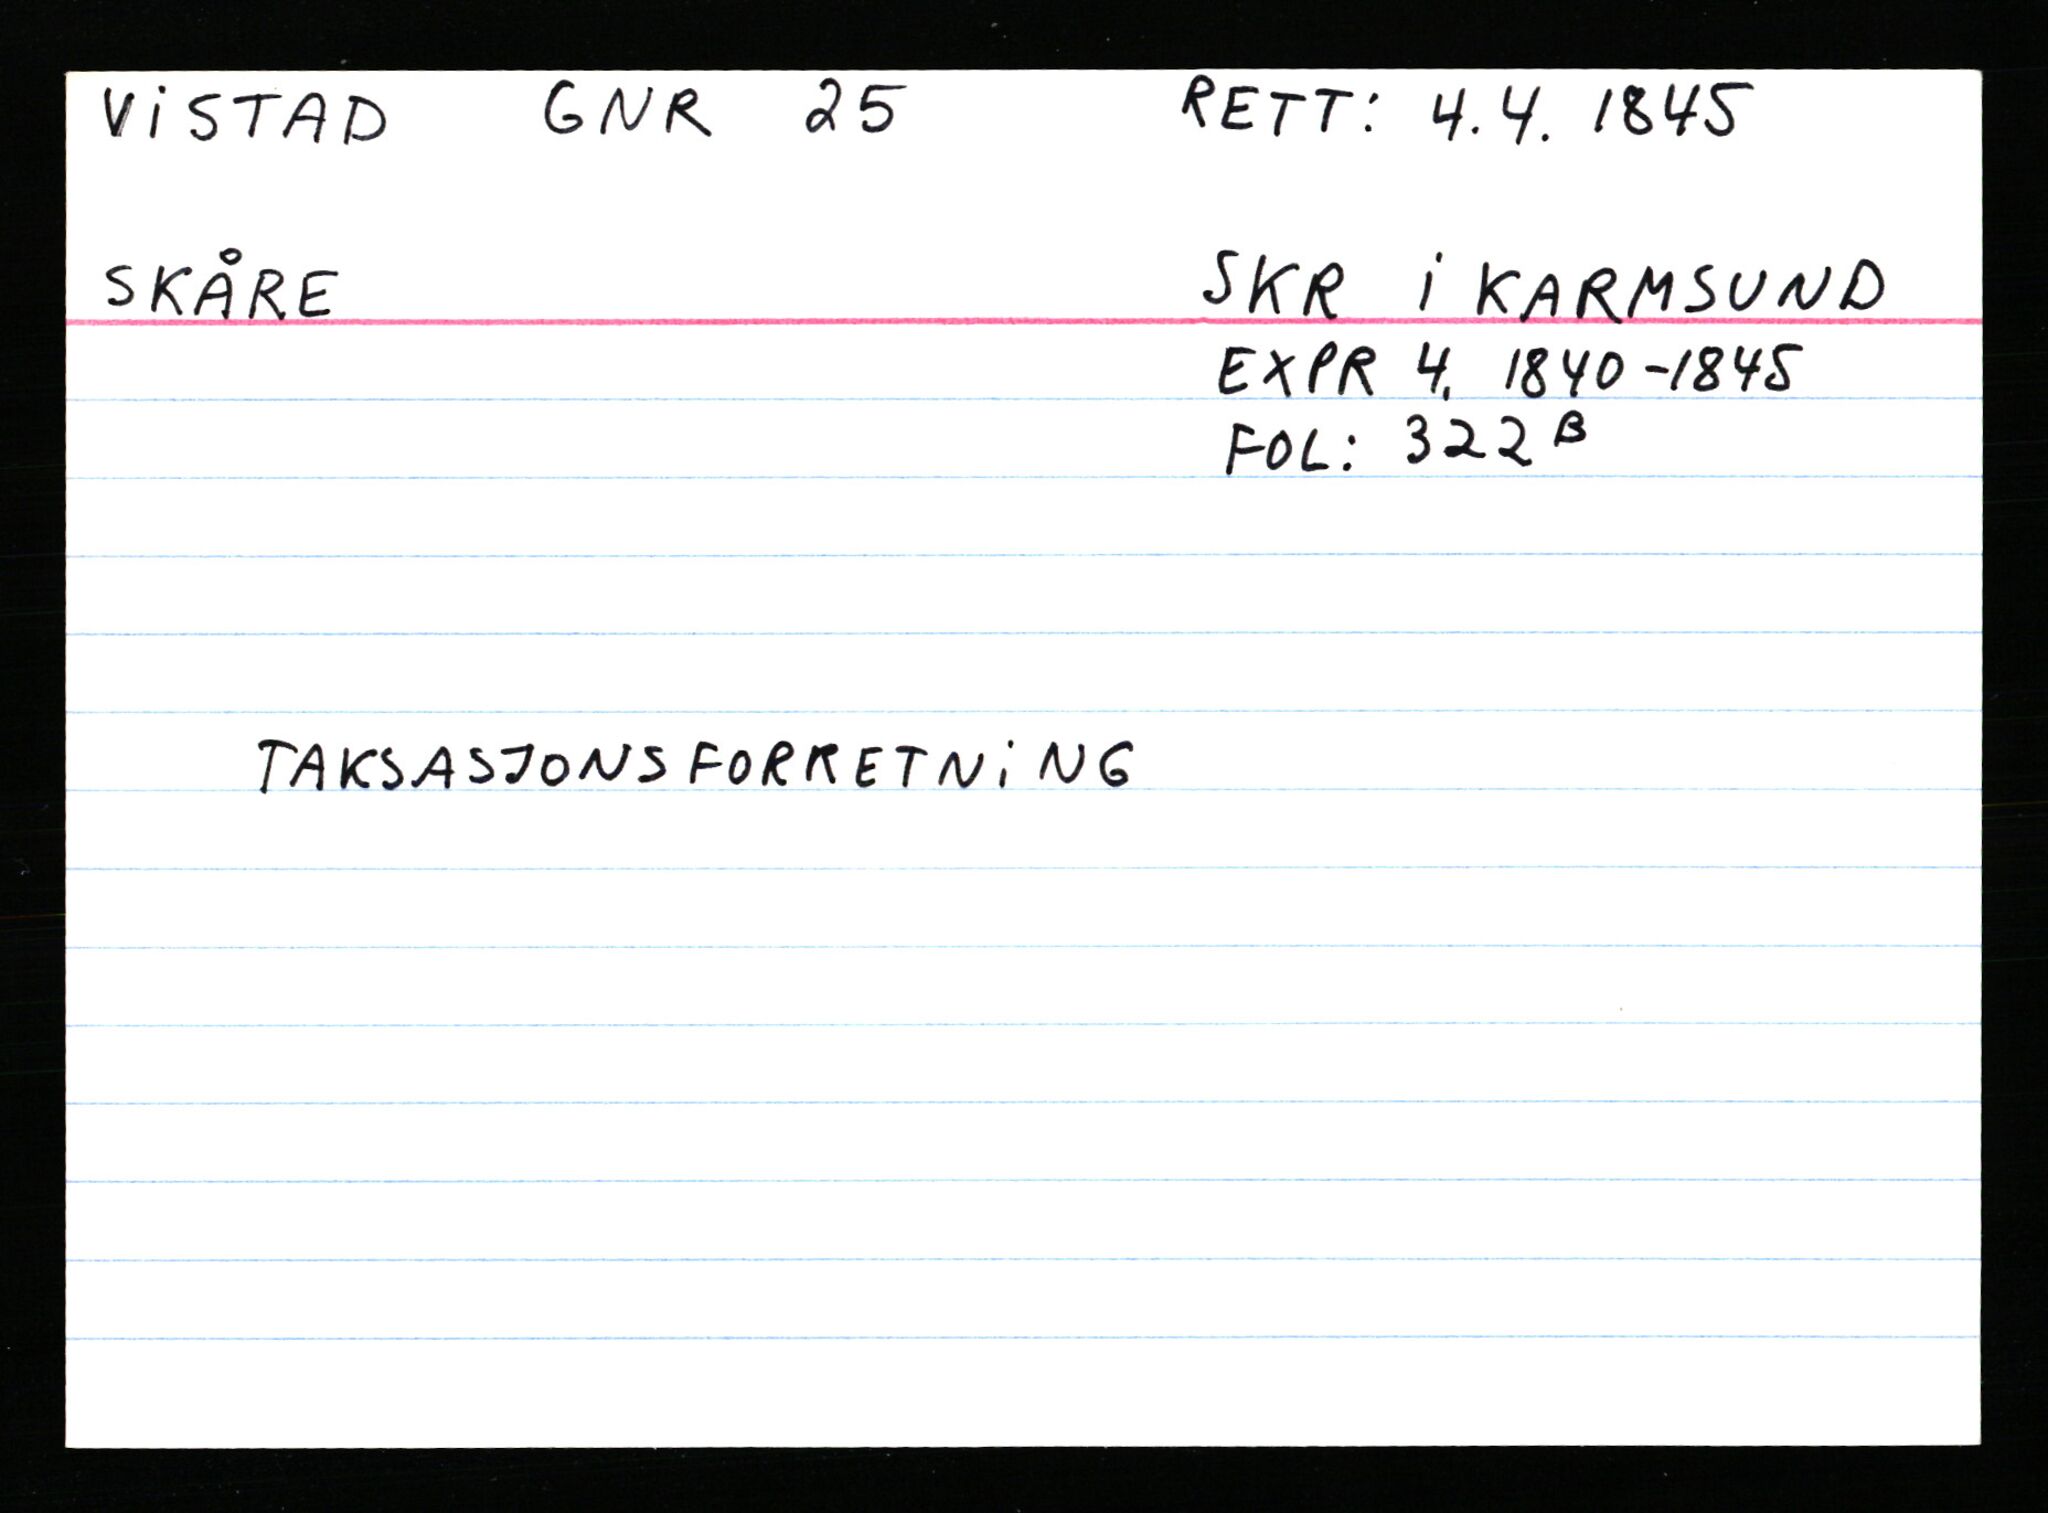 VISTAD GNR 25 RETT: 4.4. 1845
SKÅRE SKR I KARMSUND
EXPR 4. 1840-1845
FOL: 322 B
TAKSASJONSFORRETNING